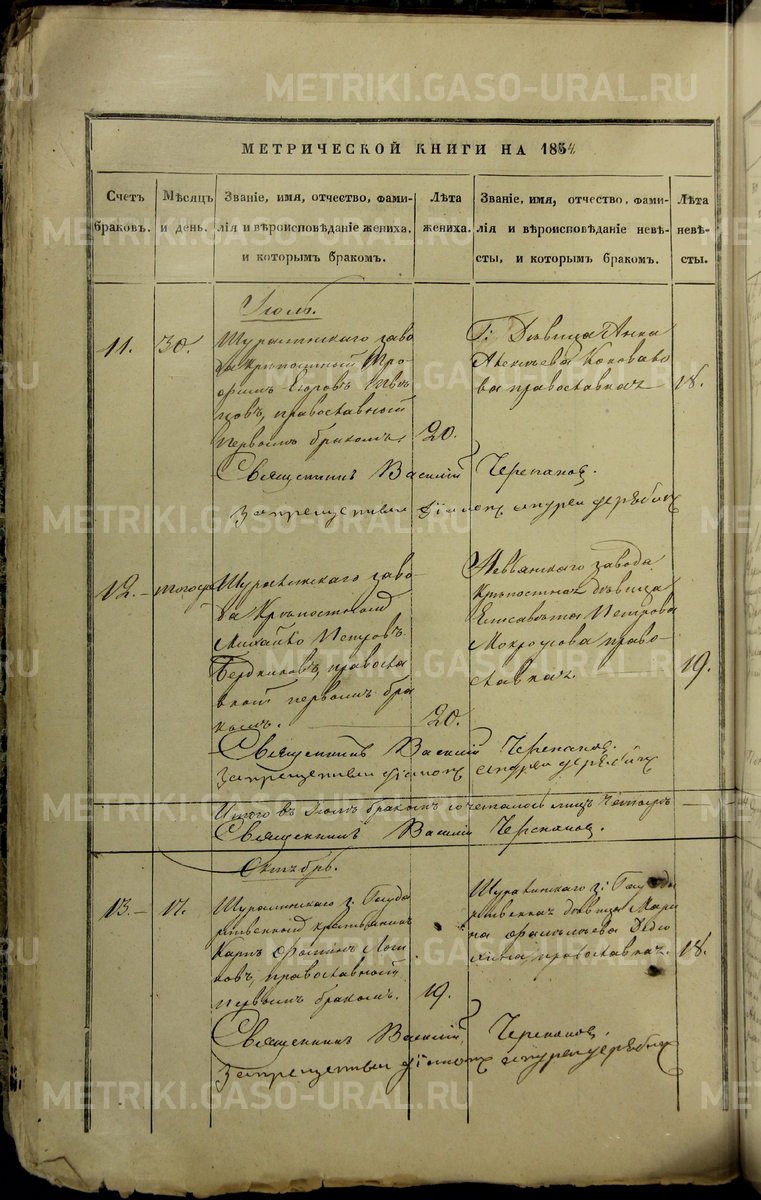 МЕТРИЧЕСКОЙ КНИГИ НА 1854
Счетъ браковъ.
Мѣсяцъ и день.
Званіе, имя, отчество, фами-
лія и вѣроисповѣданіе жениха,
и которымъ бракомъ.
Лѣта жениха.
Званіе, имя, отчество, фами-
лія и вѣроисповѣданіе невѣ-
сты, и которымъ бракомъ.
Лѣта невѣ-
сты.
Іюль.
11.
30.
Шуралинскаго заво
да крѣпостный Тро
фимъ Егоровъ
православный
первымъ бракомъ
20.
Дѣвица Анна
Алексѣева Коновало
ва православная
18.
Священникъ Василій Черепановъ.
12.
тогоже
Шуралинскаго заво-
да Крѣпостной
Михайло Петровъ
Бердниковъ, правосла
вной первымъ бра
комъ.
20.
Невьянскаго завода
крѣпостная дѣвица
Елисавета Петрова
Мокроусова право-
славная.
19.
Священникъ Василій Черепановъ.
Итого въ Іюлѣ бракомъ сочеталось лицъ четыре
Священникъ Василій Черепановъ.
Октябрь.
13.
17.
Шуралинскаго з: Госуда
рственной крестьянинъ
Карпъ Фоминъ Логи
новъ, православный
первымъ бракомъ.
19.
Шуралинскаго з: Госуда
рственная дѣвица Мари
на
православная.
18.
Священникъ Василій Черепановъ.
METRIKI.GASO-URAL.RU